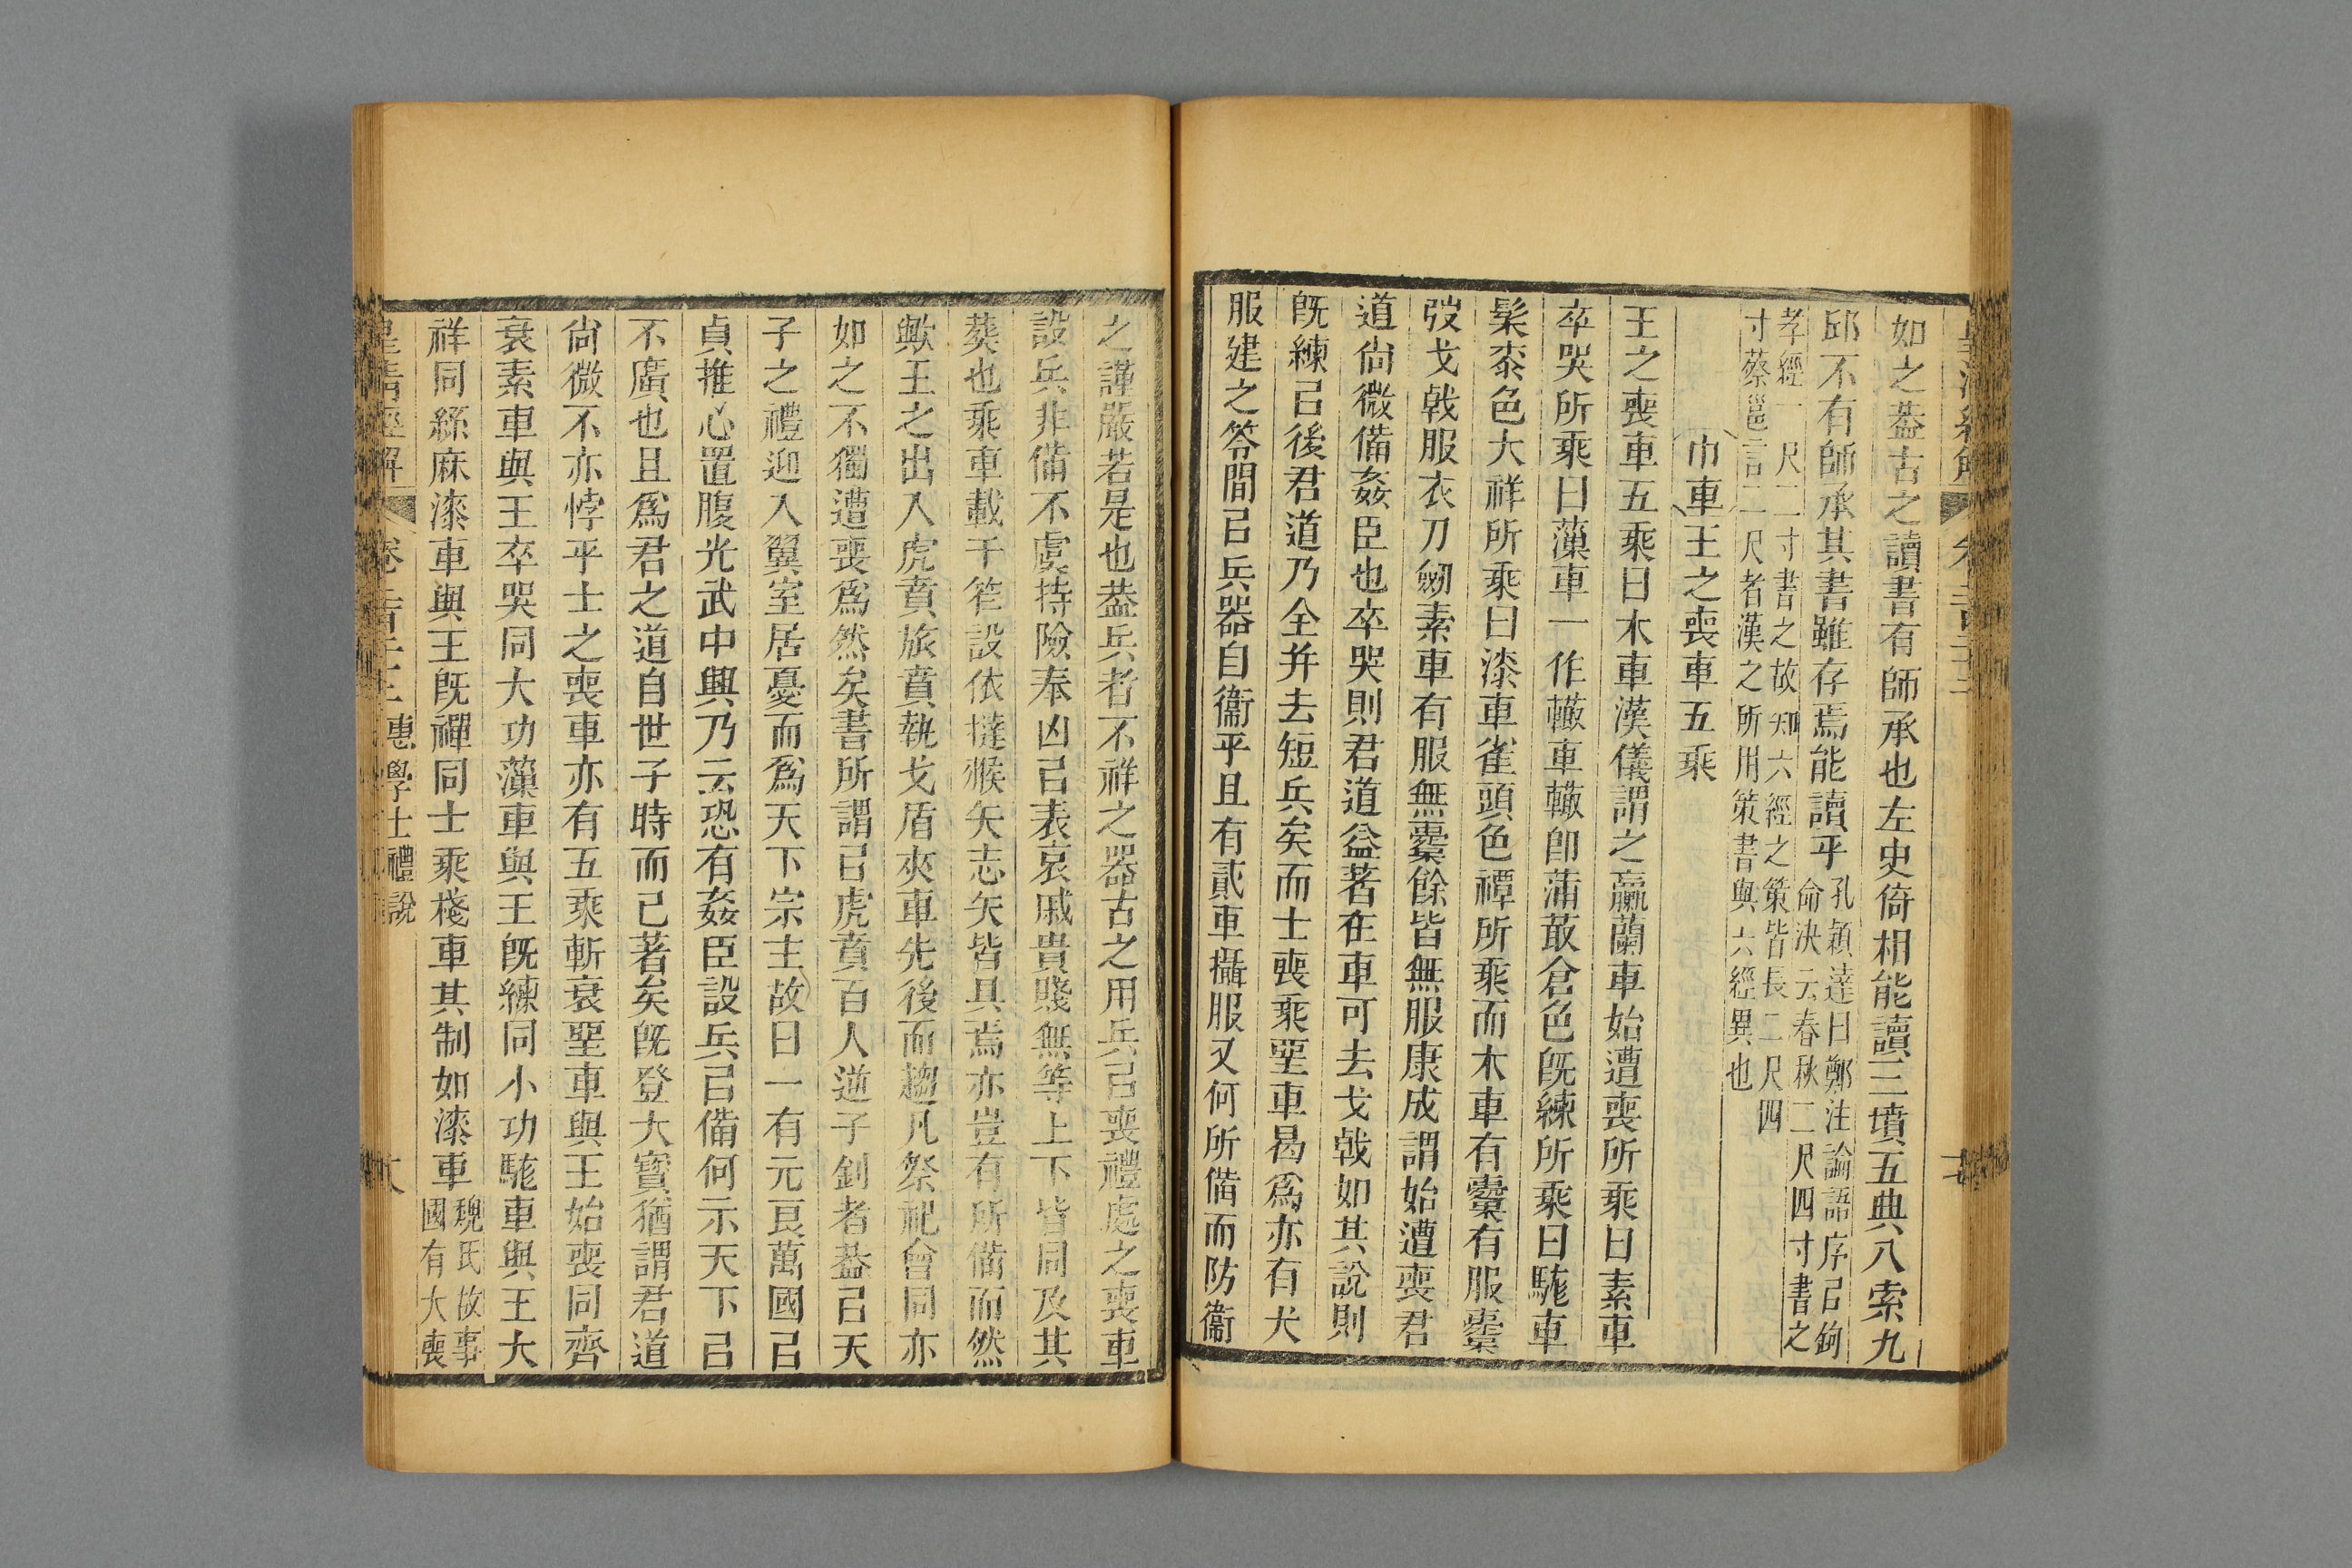 如之葢古之讀書有師承也左史倚相能讀三墳五典八索九
邱不有師承其書雖存焉能讀乎孔穎達曰鄭注論語序㠯鉤
命決云春秋二尺四寸書之
孝經一尺二寸書之故知六經之策皆長二尺四
寸蔡邕言二尺者漢之所用策書與六經異也
巾車王之喪車五乘
王之喪車五乘曰木車漢儀謂之驘蘭車始遭喪所乘曰素車
卒哭所乘曰薻車一作轍車轍卽蒲菆倉色旣練所乘曰駹車
髤桼色大祥所乘曰漆車雀頭色禫所乘而木車有櫜有服櫜
弢戈戟服衣刀劒素車有服無櫜餘皆無服康成謂始遭喪君
道尙微備姦臣也卒哭則君道益著在車可去戈戟如其說則
旣練㠯後君道乃全幷去短兵矣而士喪乘堊車曷爲亦有犬
服建之笭間㠯兵器自衞乎且有貳車攝服又何所備而防衞
之謹嚴若是也葢兵者不祥之器古之用兵㠯喪禮處之喪車
設兵非備不虞持險奉凶㠯表哀戚貴賤無等上下皆同及其
葬也乘車載干笮設依撻猴矢志矢皆具焉亦豈有所備而然
歟王之出入虎賁旅賁執戈盾夾車先後而趨凡祭祀會同亦
如之不獨遭喪爲然矣書所謂㠯虎賁百人逆子釗者葢㠯天
子之禮迎入翼室居憂而爲天下宗主故曰一有元良萬國㠯
貞推心置腹光武中興乃云恐有姦臣設兵㠯備何示天下㠯
不廣也且爲君之道自世子時而已著矣旣登大寶猶謂君道
尙微不亦悖乎士之喪車亦有五乘斬衰堊車與王始喪同齊
衰素車與王卒哭同大功薻車與王旣練同小功駹車與王大
祥同緦麻漆車與王旣禫同士乘棧車其制如漆車魏氏故事
國有大喪
皇淸經解 惠學士禮說